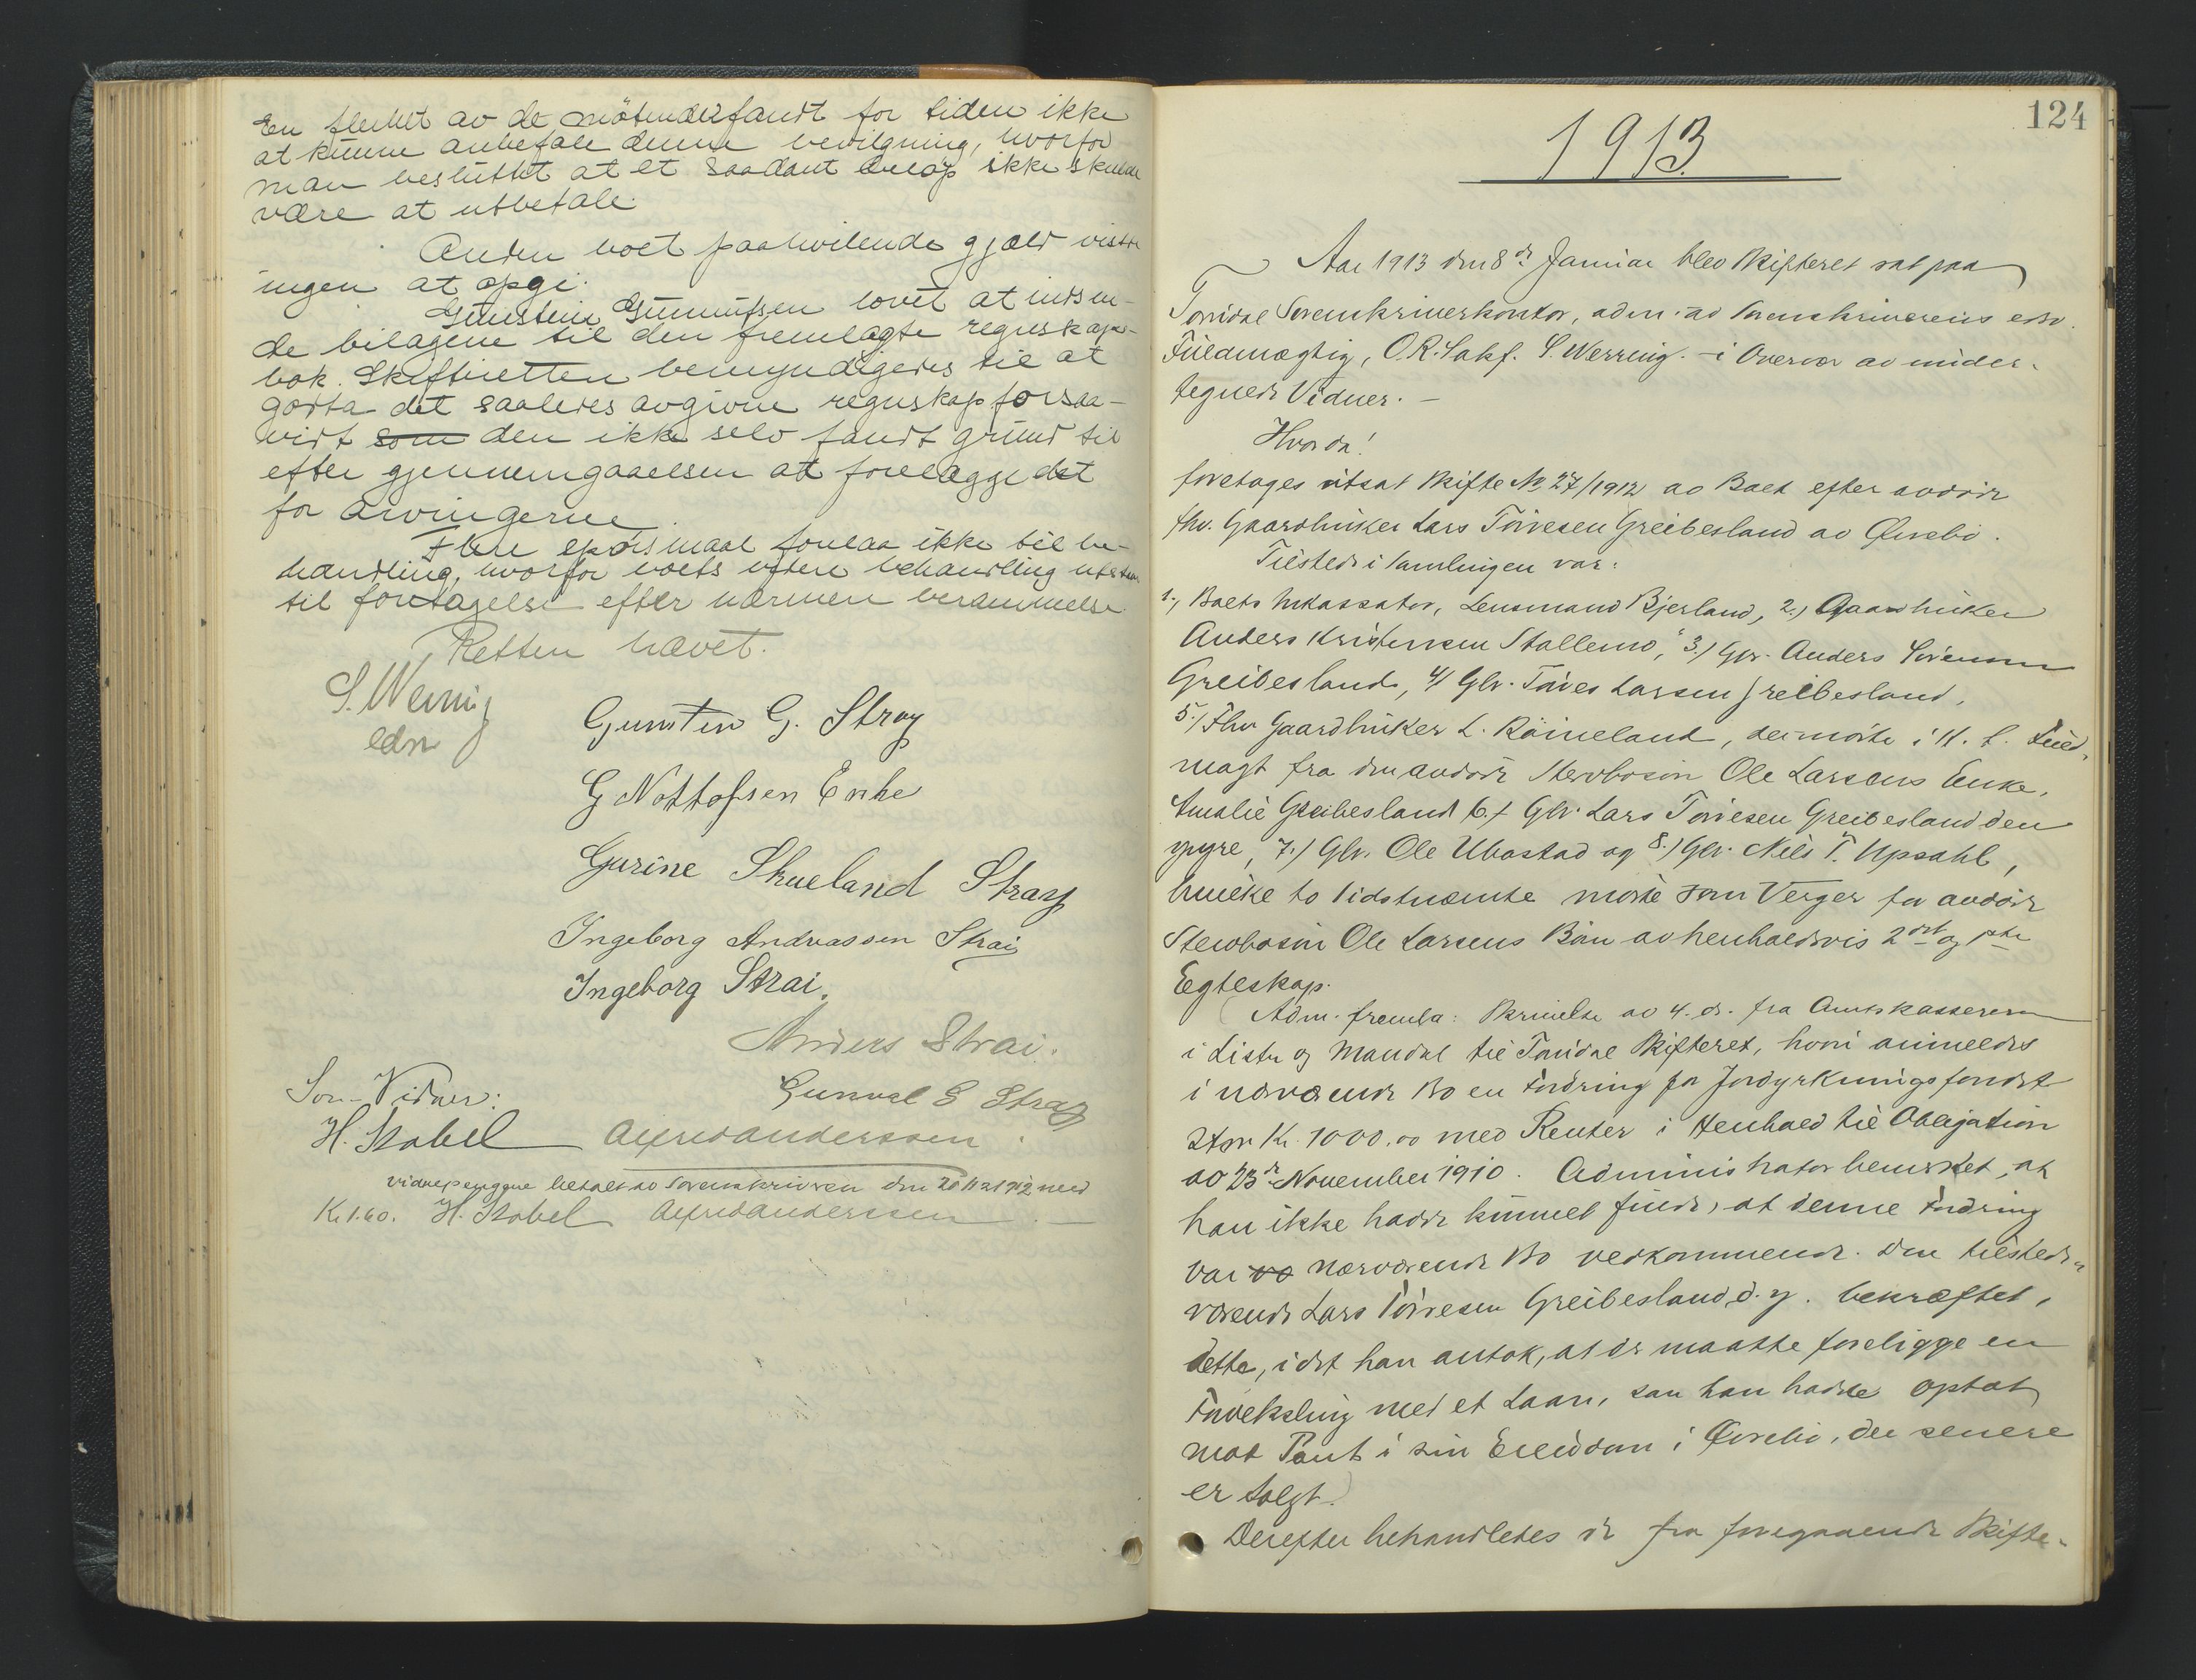 En flerhet av de mötende fandt for tiden ikke
at kunne anbefale denne bevilgning, hvorfor
man besluttet at et saadant beløp ikke skulde
være at utbetale.
Anden boet paahvilende gjæld visste
ingen at opgi.
Gunstein Gunnufsen lovet at indsen-
de bilagene til den fremlagte regnskaps-
bok. Skifteretten bemyndigedes til at
godta det saaledes avgivne regnskap forsaa-
vidt som den ikke selv fandt grund til
efter gjennemgaaelsen at forelægge det
for arvingerne.
Flere spörsmaal forelaa ikke til be-
handling, hvorfor boets videre behandling utsattes
til foretagelse efter nærmere berammelse.
Retten hævet.
S. Werring
edsv
Gunsten G. Stray
G Nottofsen Enke
Gurine Skueland Stray
Ingeborg Andreassen Strai
Ingeborg Strai.
Anders Strai.
Gunval G Stray
Som Vidner:
H. Stabel Alfred Anderssen
Vidnepengene betalt av sorenskriveren den 20/12 1912 med
Kr 1.60. H. Stabel Alfred Anderssen
124
1913.
Aar 1913 den 8de Januar blev Skifteret sat paa
Torridal Sorenskriverkontor, adm. av Sorenskriverens edsv.
Fuldmægtig, O.R.Sakf. S. Werring. i Overvær av under-
tegnede Vidner. —
Hvorda!
foretages utsat Skifte No 27/1912 av Boet efter avdøde
fhv. Gaardbruker Lars Törresen Greibesland av Øvrebö.
Tilstede i Samlingen var:
1., Boets Inkassator, Lensmand Bjerland, 2.) Gaardbruker
Anders Kristensen Stallemo, 3.) Gbr. Anders Sörensen
Greibesland, 4) Gbr. Töres Larsen Greibesland,
5.) Fhv Gaardbruker L. Röineland, der mötte i H. t. Fuld-
magt fra den avdöde Stervbosön Ole Larsens Enke,
Amalie Greibesland 6.) Gbr. Lars Törresen Greibesland den
yngre, 7.) Gbr. Ole Ubostad og 8.) Gbr. Nils T. Upsahl,
hvilke to Sidstnævnte mötte som Verger for avdöde
Stervbosön Ole Larsens Börn av henholdsvis 2det og 1ste
Egteskap.
Adm. fremla: Skrivelse av 4. ds. fra Amtskassereren
i Lister og Mandal til Torridal Skifteret, hvori anmeldes
i nærværende Bo en Fordring for Jorddyrkningsfondet
stor Kr. 1000.00 med Renter i Henhold til Obligation
av 23de November 1910. Administrator bemerket, at
han ikke hadde kunnet finde, at denne Fordring
var vo nærværende Bo vedkommende. Den tilstede-
værende Lars Törresen Greibesland d. y. bekræftet,
dette, idet han antok, at der maatte foreligge en
Forveksling med et Laan, som han hadde optat
mot Pant i sin Eiendom i Øvrebö, der senere
er solgt.
Derefter behandledes de fra foregaaende Skifte-